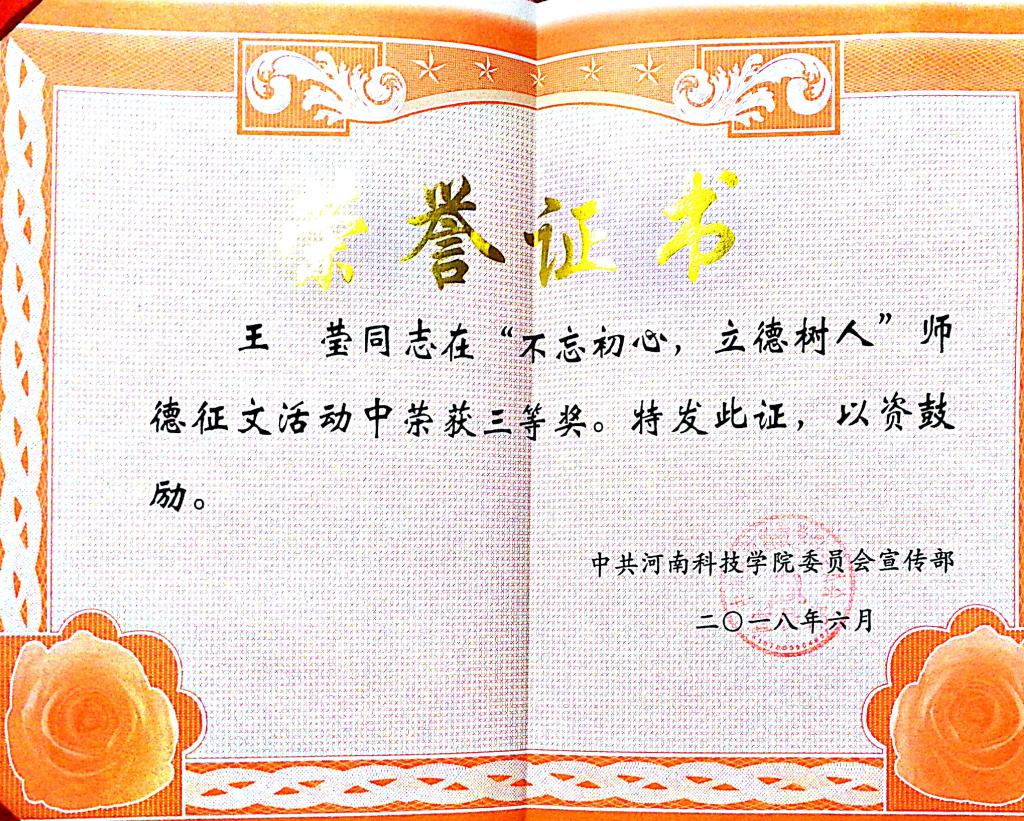 荣誉证书
王 莹同志在“不忘初心，立德树人”师
德征文活动中荣获三等奖。特发此证，以资鼓
励。
中共河南科技学院委员会宣传部
二〇一八年六月